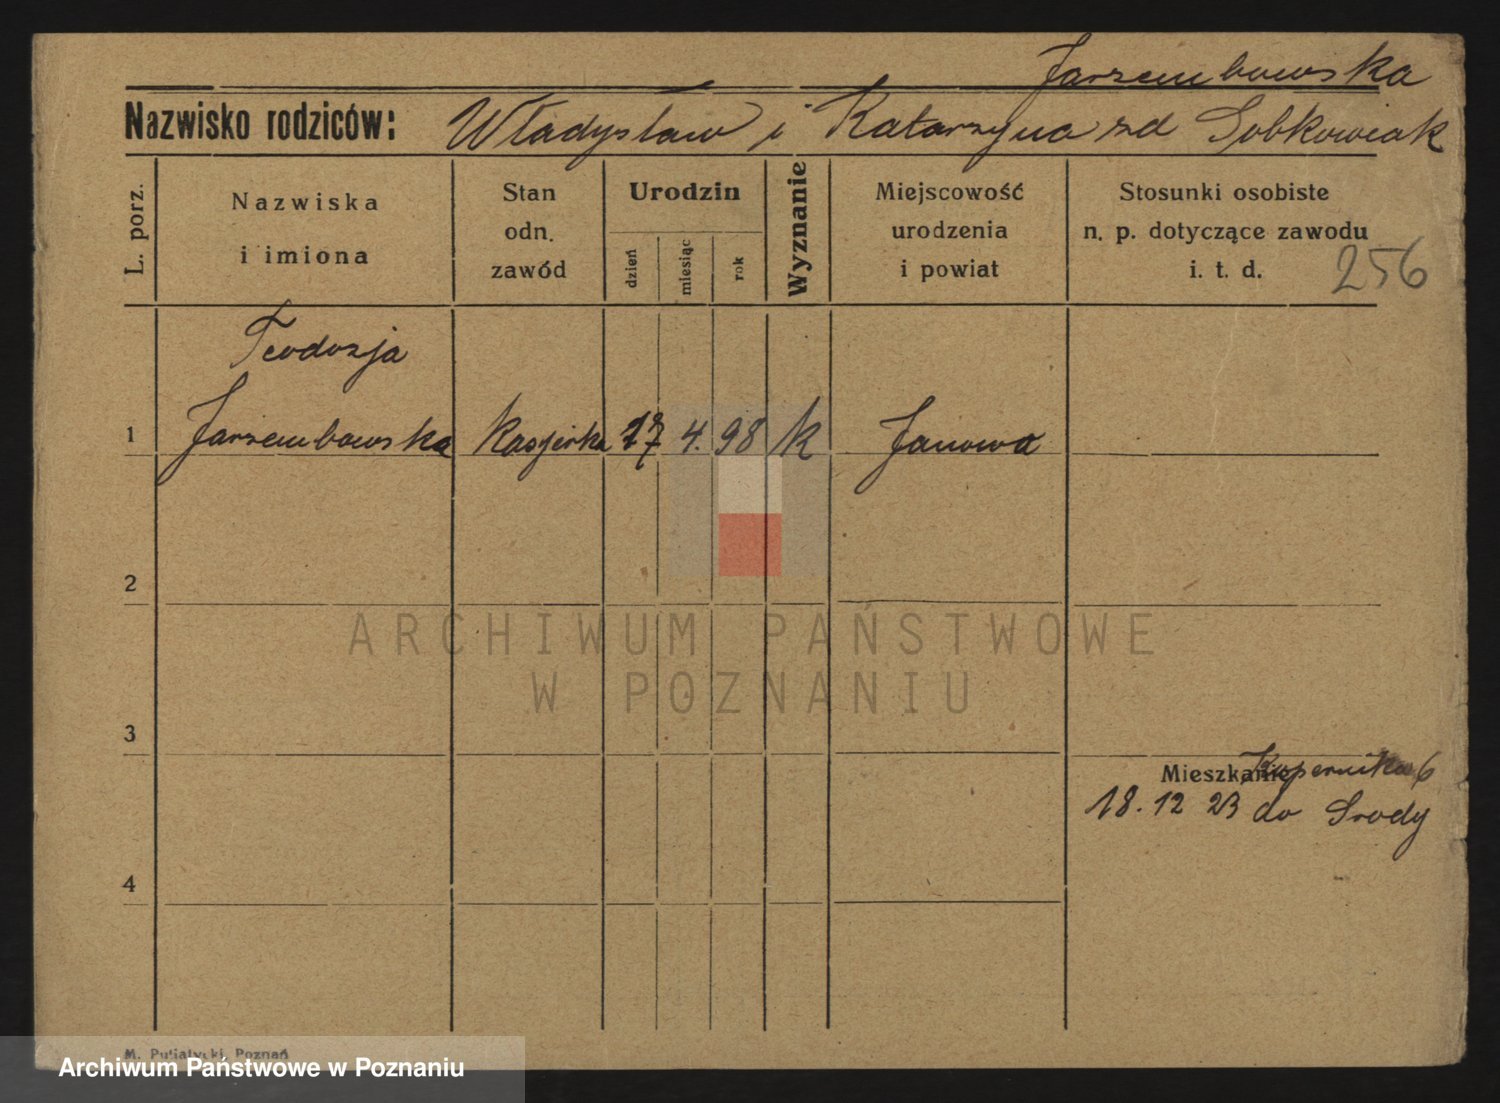 Jarzembowska
Nazwisko rodziców: Władysław i Katarzyna zd Sobkowiak
L. porz.
Nazwiska
i imiona
Stan
odn.
zawód
Urodzin
dzień
miesiąc
rok
Wyznanie
Miejscowość
urodzenia
i powiat
Stosunki osobiste
n. p. dotyczące zawodu
i. t. d.
256
Teodozja
1 Jarzembowska Kasjerka 17 4. 98 k Janowo
2
ARCHIWUM PAŃSTWOWE
W POZNANIU
3
Mieszkanie Kopernika 6
18. 12 23 do Srody
4
M. Putiatycki, Poznań
Archiwum Państwowe w Poznaniu